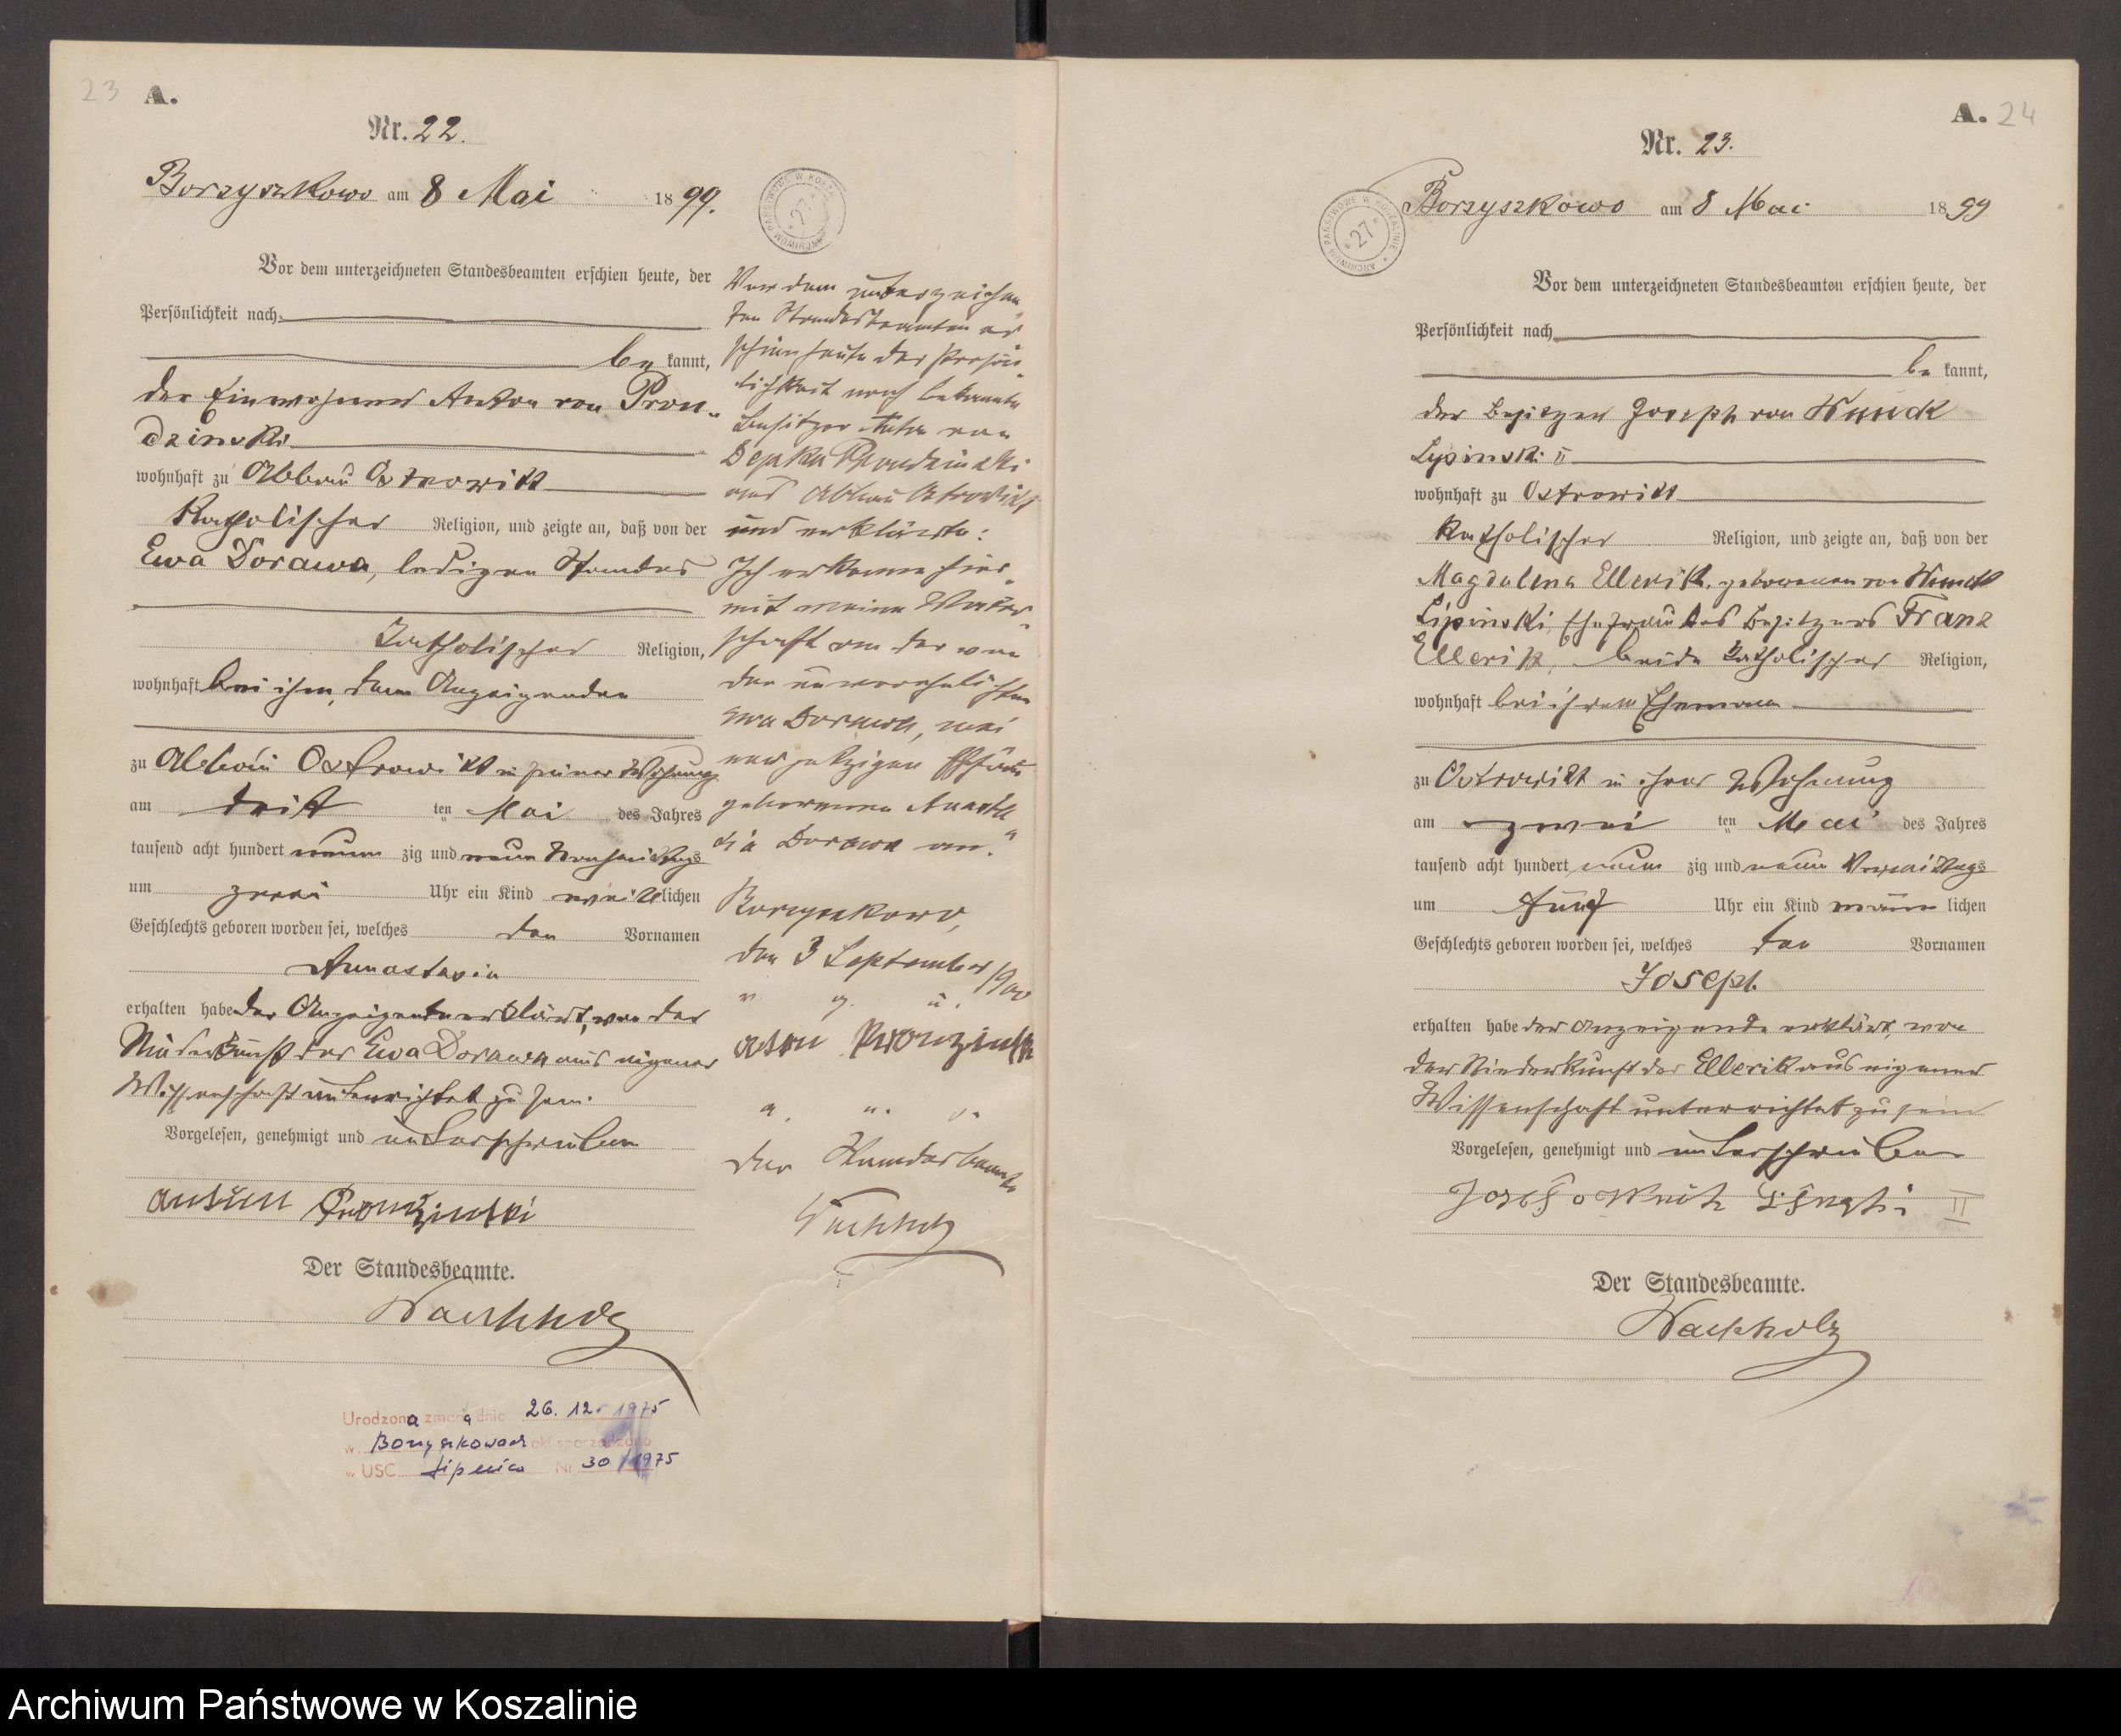 23
A.
Nr. 22.
Borzyszkowo am 8 Mai 1899.
Vor dem unterzeichneten Standesbeamten erschien heute, der
Persönlichkeit nach
be kannt,
der Einwohner Anton von Pron-
dzinski
wohnhaft zu Abbau Ostrowitt
Katholischer Religion, und zeigte an, daß von der
Ewa Dorawa, ledigen Standes
Katholischer Religion,
wohnhaft bei ihm, dem Anzeigenden
zu Abbau Ostrowitt in seiner Wohnung
am dritten Mai des Jahres
tausend acht hundert neun zig und neun Nachmittags
um zwei Uhr ein Kind weiblichen
Geschlechts geboren worden sei, welches den Vornamen
Annastasia
erhalten habe der Anzeigende erklärt, von der
Niederkunft der Ewa Dorawa aus eigener
Wissenschaft unterrichtet zu sein.
Vorgelesen, genehmigt und unterschrieben
Der Standesbeamte.
Wachholz
Urodzona zmarła dnia 26. 12. 1975
w Borzyszkowach akt sporządzono
w USC Lipnica Nr 30/1975
ARCHIWUM PAŃSTWOWE W KOSZALINIE
* 27 *
Vor dem unterzeichne-
ten Standesbeamten er-
schien heute der Persön-
lichkeit nach bekannte
Besitzer Anton von
und Abbau Ostrowitt
und erklärte:
Ich erkenne hier-
mit meine Vater-
schaft an der von
der unverehelichten
Ewa Dorawa, mei-
ner jetzigen Ehefrau
geborenen Anasta-
sia Dorawa an."
Borzyszkowo,
den 3 September 1900
v. g. u.
Der Standesbeamte
Wachholz
A. 24
Nr. 23.
ARCHIWUM PAŃSTWOWE W KOSZALINIE
* 27 *
Borzyszkowo am 8 Mai 1899
Vor dem unterzeichneten Standesbeamten erschien heute, der
Persönlichkeit nach
be kannt,
der Besitzer Joseph von Wnuck
Lipinski II
wohnhaft zu Ostrowitt
Katholischer Religion, und zeigte an, daß von der
Magdalena Ellerik, geborenen von Wnuck
Lipinski, Ehefrau des Besitzers Franz
Ellerik, beide Katholischer Religion,
wohnhaft bei ihrem Ehemann
zu Ostrowitt in ihrer Wohnung
am zweiten Mai des Jahres
tausend acht hundert neun zig und neun Vormittags
um fünf Uhr ein Kind männlichen
Geschlechts geboren worden sei, welches den Vornamen
Joseph
erhalten habe der Anzeigende erklärt, von
der Niederkunft der Ellerik aus eigener
Wissenschaft unterrichtet zu sein
Vorgelesen, genehmigt und unterschrieben
II
Der Standesbeamte.
Wachholz
Archiwum Państwowe w Koszalinie